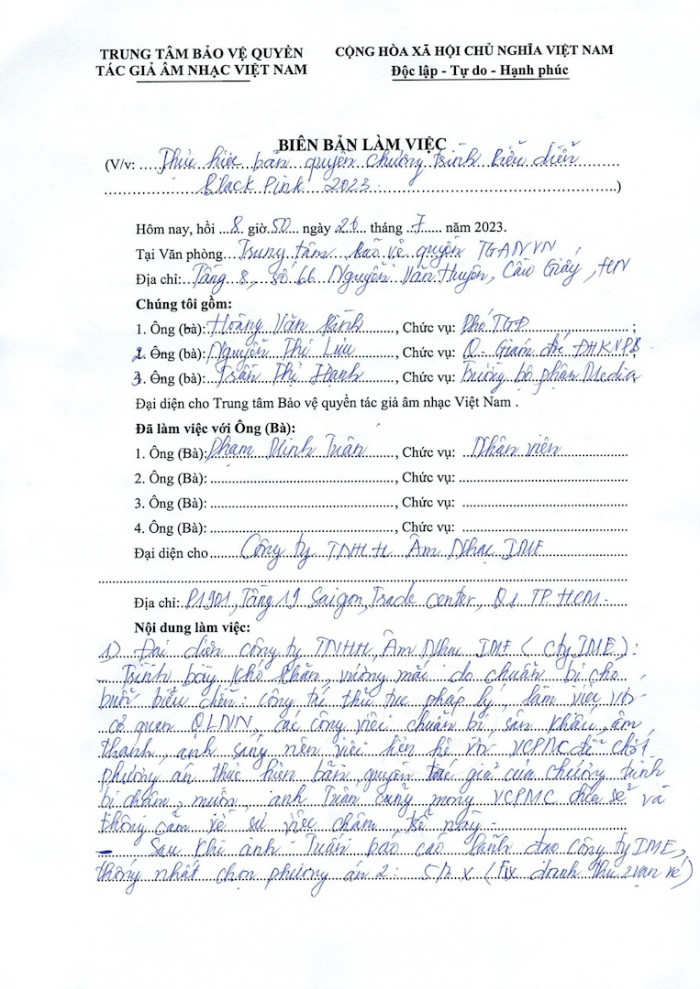 TRUNG TÂM BẢO VỆ QUYỀN
TÁC GIẢ ÂM NHẠC VIỆT NAM
CỘNG HÒA XÃ HỘI CHỦ NGHĨA VIỆT NAM
Độc lập - Tự do - Hạnh phúc
BIÊN BẢN LÀM VIỆC
(V/v: Thực hiện bản quyền chương trình biểu diễn
Black Pink 2023.)
Hôm nay, hồi 8 giờ 50 ngày 26 tháng 7 năm 2023.
Tại Văn phòng Trung tâm bảo vệ quyền TGANVN
Địa chỉ: Tầng 8, số 66 Nguyễn Văn Huyên, Cầu Giấy, HN
Chúng tôi gồm:
1. Ông (bà): Hoàng Văn Bình, Chức vụ: Phó TGĐ ;
2. Ông (bà): Nguyễn Thị Lưu, Chức vụ: Q. Giám đốc ĐHKVPB
3. Ông (bà): Trần Thị Hạnh, Chức vụ: Trưởng bộ phận Media
Đại diện cho Trung tâm Bảo vệ quyền tác giả âm nhạc Việt Nam .
Đã làm việc với Ông (Bà):
1. Ông (Bà): Phạm Minh Tuấn, Chức vụ: Nhân viên
2. Ông (Bà): , Chức vụ:
3. Ông (Bà): , Chức vụ:
4. Ông (Bà): , Chức vụ:
Đại diện cho Công ty TNHH Âm Nhạc IME
Địa chỉ: P1901, Tầng 19 Saigon, Trade center, Q1 TP. HCM.
Nội dung làm việc:
1) Đại diện công ty TNHH, Âm Nhạc IME (cty IME):
- Trình bày khó khăn, vướng mắc do chuẩn bị cho
buổi biểu diễn: công tác thủ tục pháp lý, làm việc với
cơ quan QLNN, các công việc chuẩn bị, sân khấu, âm
thanh, ánh sáng nên việc liên hệ với VCPMC để chốt
phương án thực hiện bản quyền tác giả của chương trình
bị chậm, muộn, anh Tuấn cũng mong VCPMC chia sẻ và
thông cảm về sự việc chậm trễ này.
- Sau khi anh Tuấn báo cáo lãnh đạo công ty IME,
thống nhất chọn phương án 2: 5% x (fix doanh thu 2 vạn vé)